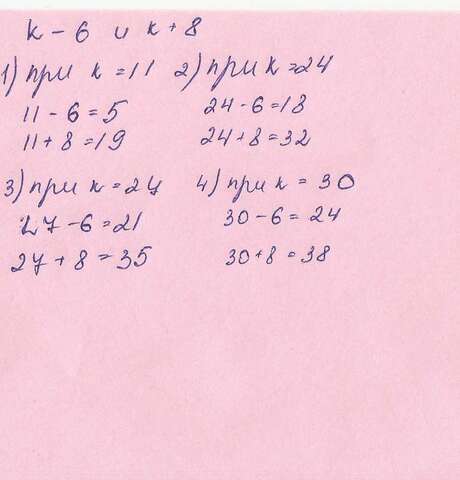 к - 6 и к + 8
1) при к = 11 2) при к = 24
11 - 6 = 5 24 - 6 = 18
11 + 8 = 19 24 + 8 = 32
3) при к = 27 4) при к = 30
27 - 6 = 21 30 - 6 = 24
27 + 8 = 35 30 + 8 = 38